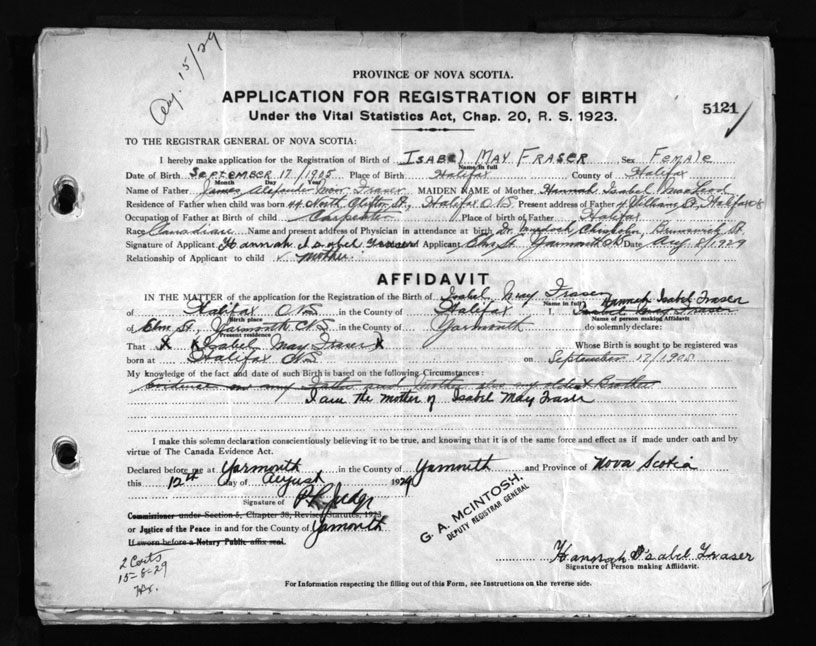 Aug. 15/29
PROVINCE OF NOVA SCOTIA.
APPLICATION FOR REGISTRATION OF BIRTH
5121
Under the Vital Statistics Act, Chap. 20, R. S. 1923.
TO THE REGISTRAR GENERAL OF NOVA SCOTIA:
I hereby make application for the Registration of Birth of ISABEL MAY FRASER Sex FEMALE
Name in full
Date of Birth SEPTEMBER 17/1905 Place of Birth Halifax County of Halifax
Month Day Year
Name of Father James Alexander Fraser MAIDEN NAME of Mother Hannah Isabel MacLeod
Residence of Father when child was born 44 North Clifton St., Halifax N.S. Present address of Father William St, Halifax
Occupation of Father at Birth of child Carpenter Place of birth of Father Halifax
Race Canadian Name and present address of Physician in attendance at birth Dr. Murdoch Chisholm, Brunswick St.
Signature of Applicant Hannah Isabel Fraser Applicant Elm St. Yarmouth Date Aug 8/1929
Relationship of Applicant to child mother
AFFIDAVIT
IN THE MATTER of the application for the Registration of Birth of Isabel May Fraser Hannah Isabel Fraser
Name in full
of Halifax N.S. in the County of Halifax I, Isabel May Fraser
Birth place Name of person making Affidavit
of Elm St., Yarmouth N.S in the County of Yarmouth do solemnly declare:
Present residence
That X Isabel May Fraser Whose Birth is sought to be registered was
born at Halifax N.S on September 17/1905
My knowledge of the fact and date of such Birth is based on the following Circumstances:
Evidence my Father and Mother also my oldest Brother
I am the mother of Isabel May Fraser
I make this solemn declaration conscientiously believing it to be true, and knowing that it is of the same force and effect as if made under oath and by
virtue of The Canada Evidence Act.
Declared before me at Yarmouth in the County of Yarmouth and Province of Nova Scotia
this 12th day of August 1929
Signature of
Commissioner under Section 5, Chapter 38, Revised Statutes, 1923
or Justice of the Peace in and for the County of Yarmouth
If sworn before a Notary Public affix seal.
G. A. McINTOSH,
DEPUTY REGISTRAR GENERAL
2 Certs
15-8-29
Hannah Isabel Fraser
Signature of Person making Affidavit.
For Information respecting the filling out of this Form, see Instructions on the reverse side.